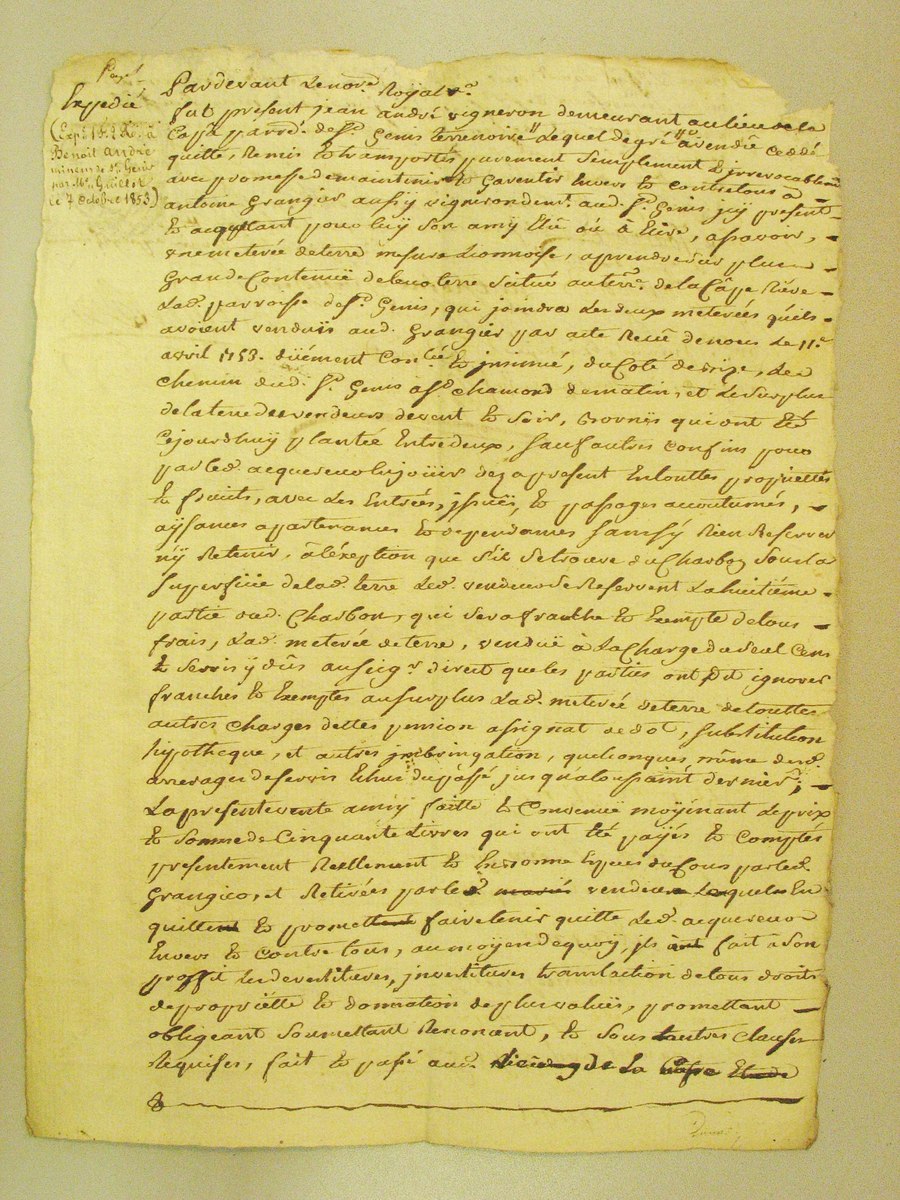 Payé
Expedié
(Exp. 1 f. 2 R. à
Benoit André
mineur de St Genis
par Me Guillot
le 7 octobre 1853)
Pardevant Lenore. Royal
fut present jean andré vigneron demeurant au lieu de la
Cape parrse. de St. Genis terrenoire lequel de gré a vendu ceddé
quitte, Remis et transportés purement Simplement & irrevocablement
avec promesse de maintenir et Garentir Envers et contre tous à
antoine Grangier aussy vigneron demt. aud. St. Genis icy present
et acqueptant pour luy Son amy Elû où à Elire, asçavoir,
une meterée de terre mesure Lionnoise, aprendre Sur plus
Grande Contenuë de leur terre Situé au terre. de la Cape Riere
Lad. parroisse de St. Genis, qui joindra Les deux meterées qu'ils
avoient venduës aud. Grangier par acte Reçû de nous Le 11e
avril 1753. düement Conlé. et insinué, du Coté de bize, Le
chemin dud. St. Genis a St. chamond de matin, et Le Surplus
de la terre des vendeurs de vent et Soir, bornes qui ont Eté
cejourd'huy plantée Entredeux, Sauf autres confins pour
par led. acquereur en jouir dez apresent En toutte proprietté
et fruits, avec Les Entrées, issuës, et passages accoutumés,
aysances apartenances et dependances Sans y Rien Reserver
ny Retenir, à l'éxeption que S'il Se trouve du Charbon Sous la
Superficie de lad. terre Led. vendeur Se Reservent La huitième
partie aud. Charbon, qui Sera franche et Exempte de tous
frais, Lad. meterée de terre, venduë à La Charge du Seul Cens
& Servis y dûs au Seigr. direct que les parties ont dit ignorer
franches et Exemptes au Surplus Lad. meterée de terre de touttes
autres charges dettes pension assignat de dot, Substitution
hypotheque, et autres imbringation, quelconques, même des
arrerages de Servis Echu du passé jusqu'a la toussaint dernier;
La presente vente ainsy faitte et Convenuë moyenant Le prix
et Somme de Cinquante Livres qui ont Eté payés et Comptés
presentement Réellement et En bonne Especes du Cours par led.
Grangier, et Retirées par led. mariés vendeurs Lesquels En
quittent et promettent faire tenir quitte Led. acquereur
Envers et contre tous, au moyen de quoy, ils ont fait à Son
proffit Les devestitures, investitures translaction de tous droits
de proprietté et donnation de plus valuë, promettant
obligeant Soumettant Renonçant, et Sous & autres clauses
Requises, fait et passé aud. de La Cape